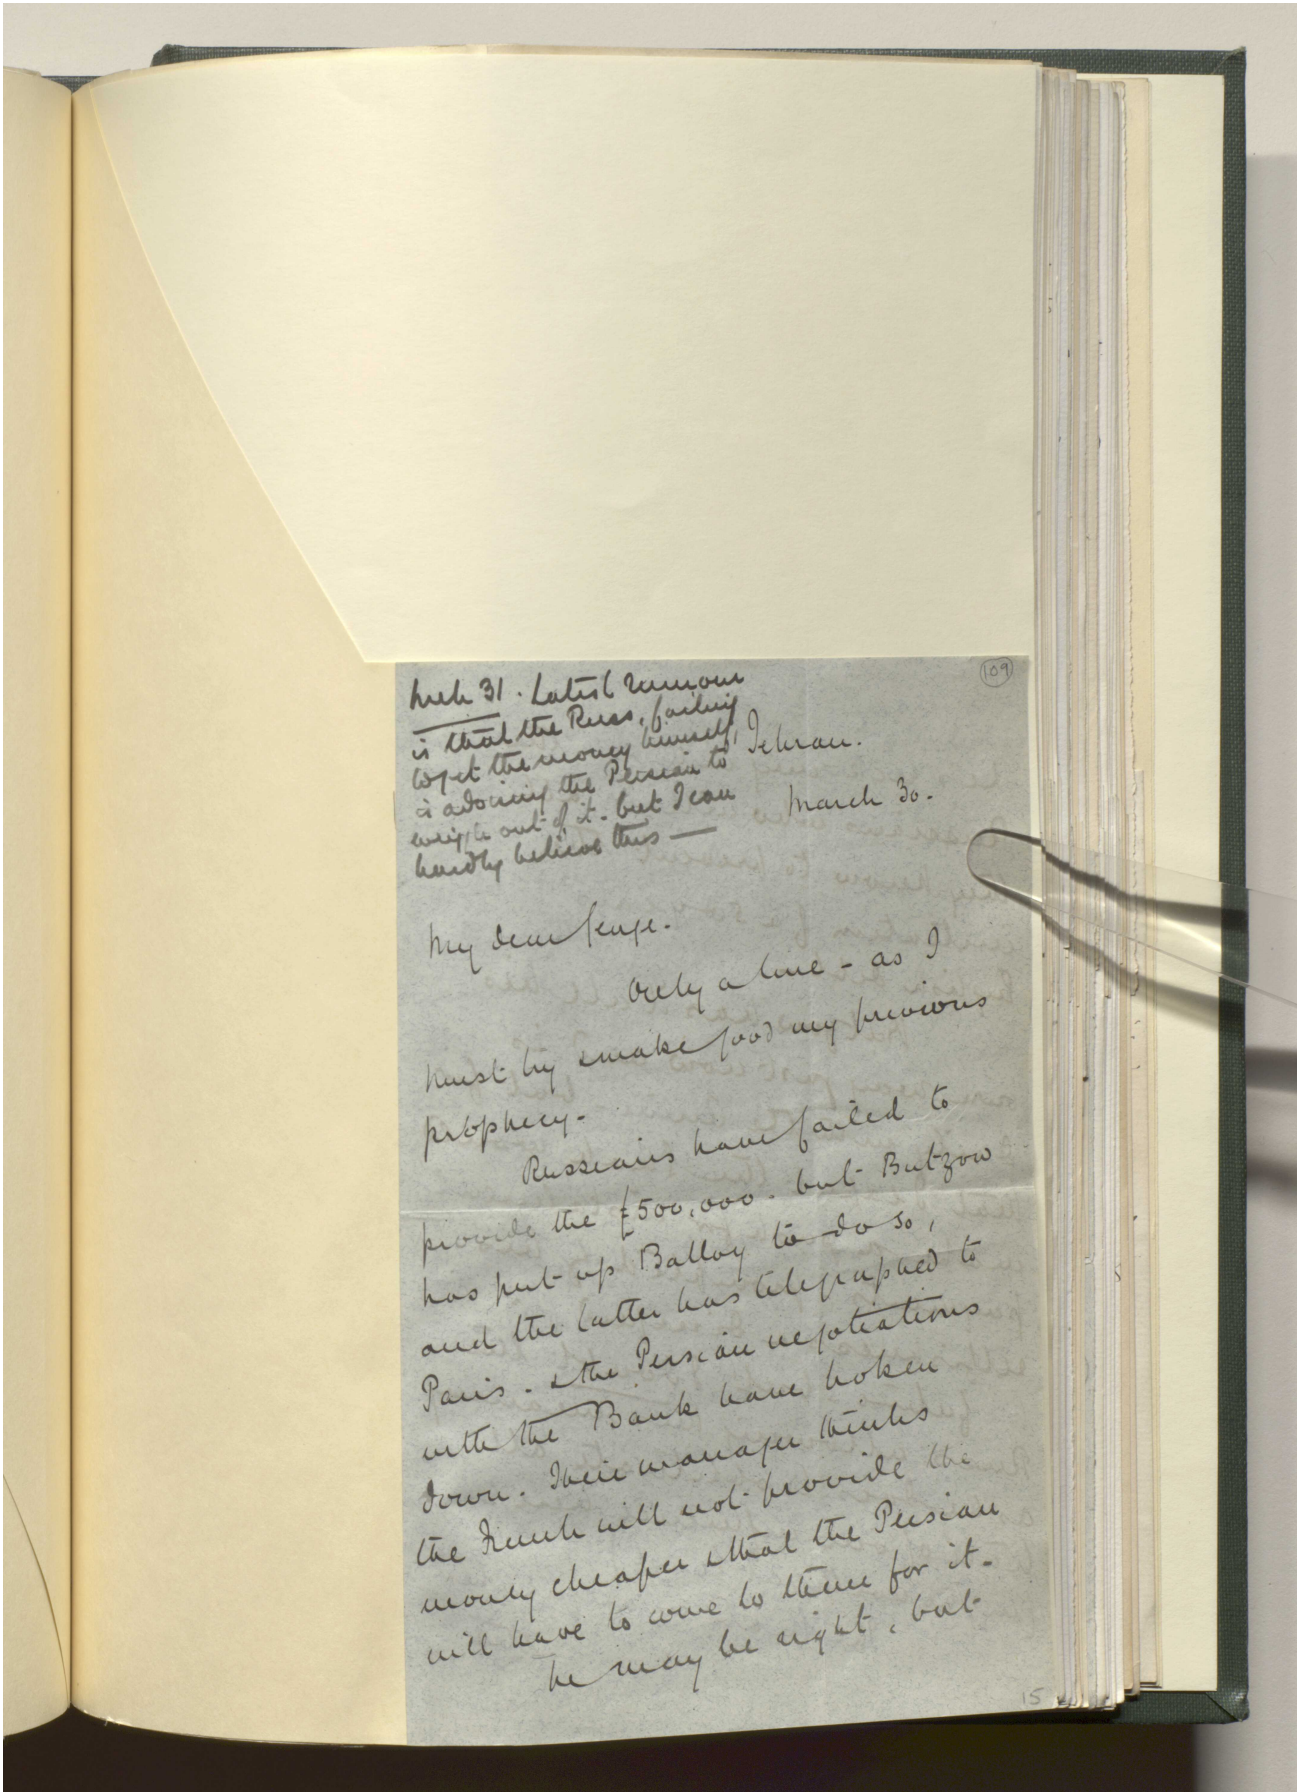 109
Mch 31. Latest rumour
is that the Russ, failing
to get the money himself,
is advising the Persian to
wriggle out of it - but I can
hardly believe this —
Tehran.
March 30.
My dear
Only a line - as I
must try & make good my previous
prophecy.
Russians have failed to
provide the £500,000. but Butzow
has put up Balloy to do so,
and the latter has telegraphed to
Paris. & the Persian negotiations
with the Bank have broken
down. Their manager thinks
the French will not provide the
money cheaper & that the Persian
will have to come to them for it.
He may be right, but
15